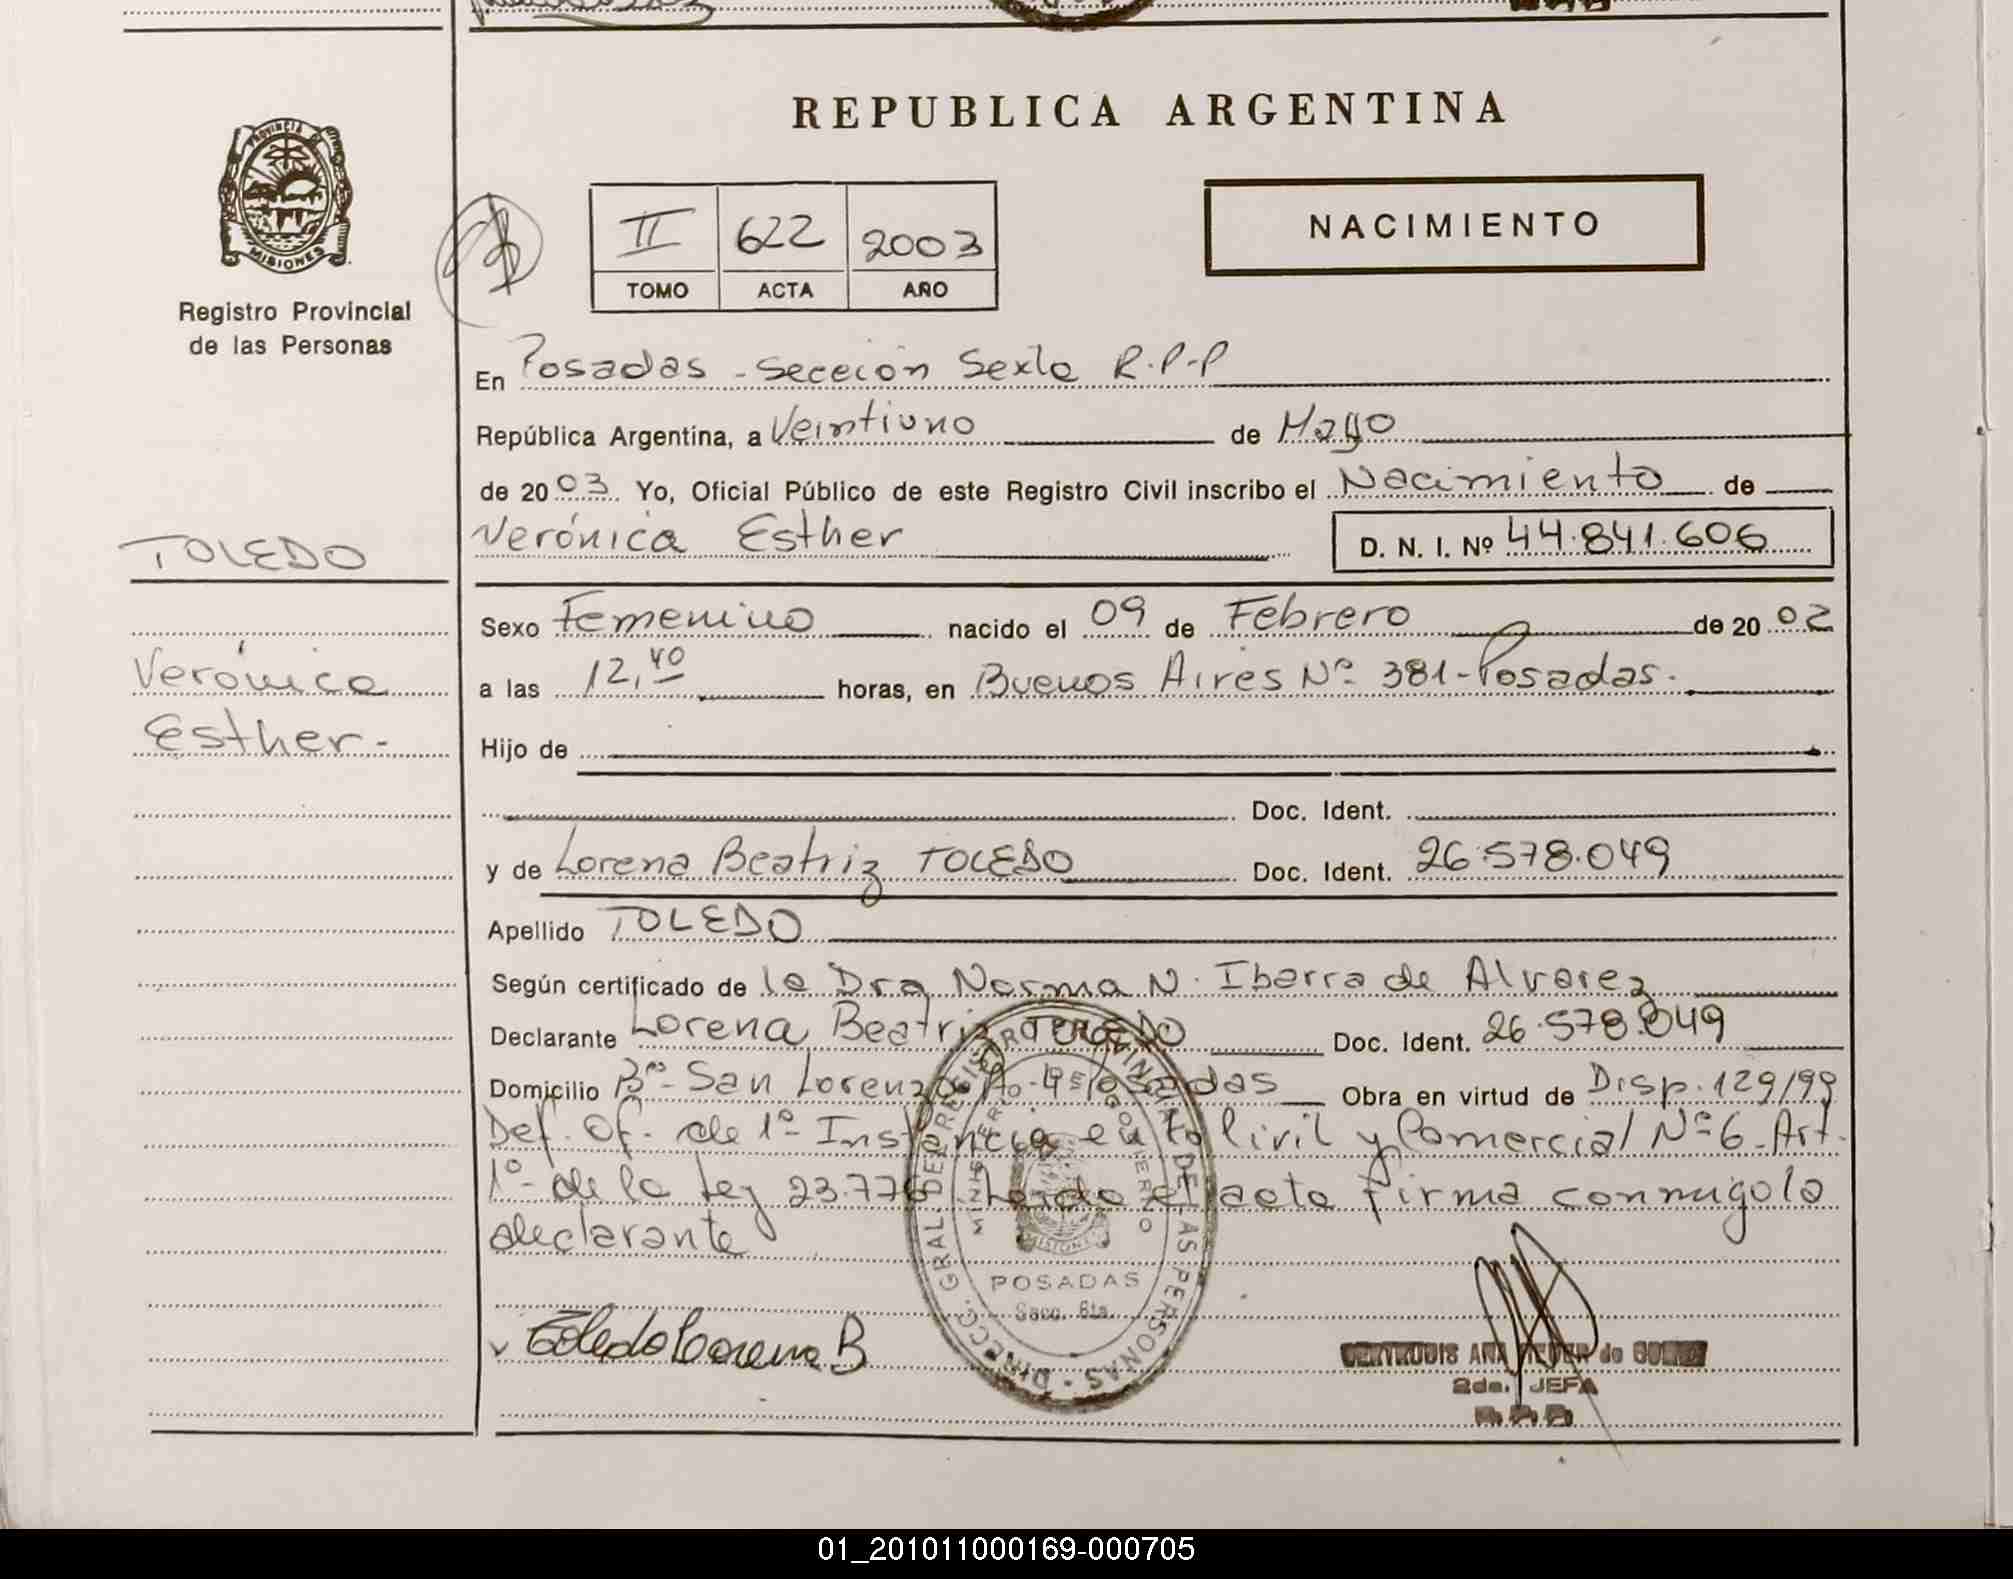 REPUBLICA ARGENTINA
PROVINCIA DE
MISIONES
Registro Provincial
de las Personas
II 622 2003
TOMO ACTA AÑO
NACIMIENTO
En Posadas - Sección Sexta R.P.P
República Argentina, a Veintiuno de Mayo
de 2003. Yo, Oficial Público de este Registro Civil inscribo el Nacimiento de
Verónica Esther D. N. I. Nº 44.841.606
TOLEDO
Verónica
Esther.-
Sexo Femenino nacido el 09 de Febrero de 2002
a las 12,40 horas, en Buenos Aires Nº 381-Posadas.
Hijo de
Doc. Ident.
y de Lorena Beatriz TOLEDO Doc. Ident. 26.578.049
Apellido TOLEDO
Según certificado de la Dra Norma N. Ibarra de Alvarez
Declarante Lorena Beatriz TOLEDO Doc. Ident. 26.578.049
Domicilio Bº- San Lorenzo Posadas Obra en virtud de Disp. 129/99
Def. Of. de 1º- Instancia en lo Civil y Comercial Nº 6- Art.
1º- de la Ley 23.776 Leida el acta firma conmigo la
declarante
DIRECC. GRAL. DE REGISTRO PROVINCIAL DE LAS PERSONAS
MINISTERIO GOBIERNO
MISIONES
POSADAS
Secc. 6ta.
Toledo Lorena B
GERTRUDIS ANA de
2da. JEFA
01_201011000169-000705